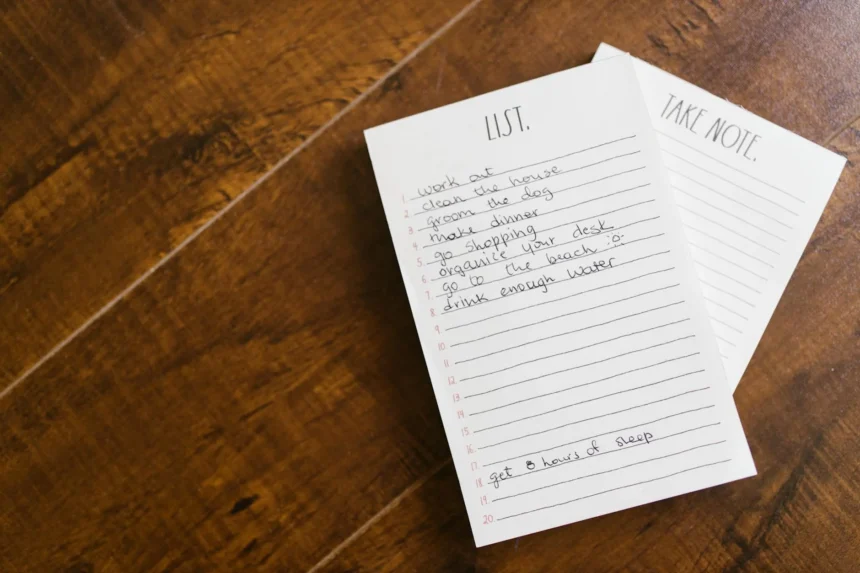 LIST.
1. work out
2. clean the house
3. groom the dog
4. make dinner
5. go shopping
6. organise your desk
7. go to the beach
8. drink enough water
9.
10.
11.
12.
13.
14.
15.
16.
17.
18. get 8 hours of sleep
19.
20.
TAKE NOTE.